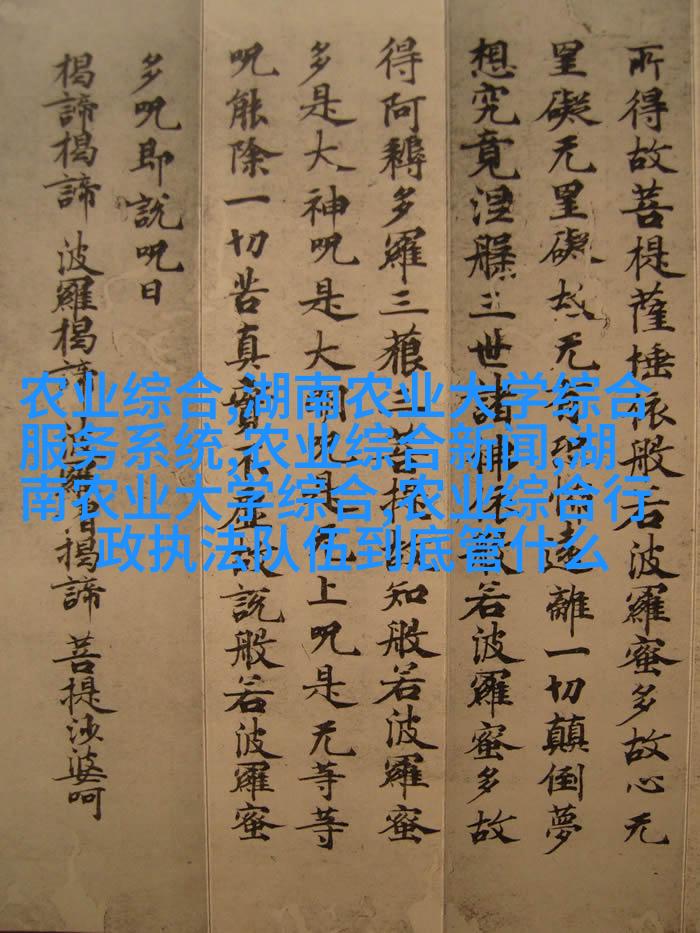 所得故菩提薩埵依般若波羅蜜多故心无
罣礙无罣礙故无有恐怖遠離一切顛倒夢
想究竟涅槃三世諸佛依般若波羅蜜多故
得阿耨多羅三藐三菩提故知般若波羅蜜
多是大神呪是大明呪是无上呪是无等等
呪能除一切苦真實不虛故說般若波羅蜜
多呪即說呪曰
揭諦揭諦 波羅揭諦 波羅僧揭諦 菩提沙婆呵
农业综合,湖南农业大学综合
服务系统,农业综合新闻,湖
南农业大学综合,农业综合行
政执法队伍到底管什么